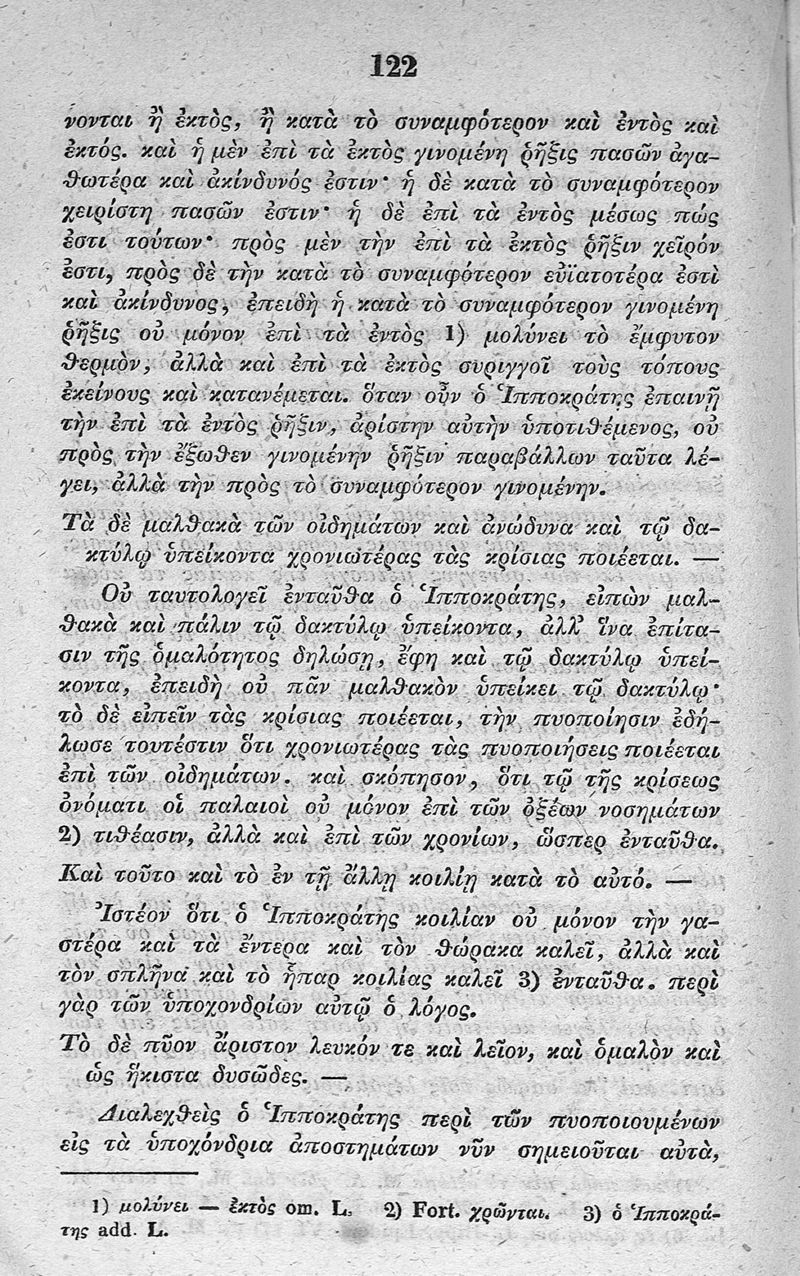 122
νονται ἢ ἐκτὸς, ἢ κατὰ τὸ συναμφότερον καὶ ἐντὸς καὶ
ἐκτός. καὶ ἡ μὲν ἐπὶ τὰ ἐκτὸς γινομένη ῥῆξις πασῶν ἀγα-
θωτέρα καὶ ἀκίνδυνός ἐστιν· ἡ δὲ κατὰ τὸ συναμφότερον
χειρίστη πασῶν ἐστιν· ἡ δὲ ἐπὶ τὰ ἐντὸς μέσως πώς
ἐστι τούτων· πρὸς μὲν τὴν ἐπὶ τὰ ἐκτὸς ῥῆξιν χεῖρόν
ἐστι, πρὸς δὲ τὴν κατὰ τὸ συναμφότερον εὐϊατοτέρα ἐστὶ
καὶ ἀκίνδυνος, ἐπειδὴ ἡ κατὰ τὸ συναμφότερον γινομένη
ῥῆξις οὐ μόνον ἐπὶ τὰ ἐντὸς 1) μολύνει τὸ ἔμφυτον
θερμὸν, ἀλλὰ καὶ ἐπὶ τὰ ἐκτὸς συριγγοῖ τοὺς τόπους
ἐκείνους καὶ κατανέμεται. ὅταν οὖν ὁ Ἱπποκράτης ἐπαινῇ
τὴν ἐπὶ τὰ ἐντὸς ῥῆξιν, ἀρίστην αὐτὴν ὑποτιθέμενος, οὐ
πρὸς τὴν ἔξωθεν γινομένην ῥῆξιν παραβάλλων ταῦτα λέ-
γει, ἀλλὰ τὴν πρὸς τὸ συναμφότερον γινομένην.
Τὰ δὲ μαλθακὰ τῶν οἰδημάτων καὶ ἀνώδυνα καὶ τῷ δα-
κτύλῳ ὑπείκοντα χρονιωτέρας τὰς κρίσιας ποιέεται. —
Οὐ ταυτολογεῖ ἐνταῦθα ὁ Ἱπποκράτης, εἰπὼν μαλ-
θακὰ καὶ πάλιν τῷ δακτύλῳ ὑπείκοντα, ἀλλ' ἵνα ἐπίτα-
σιν τῆς ὁμαλότητος δηλώσῃ, ἔφη καὶ τῷ δακτύλῳ ὑπεί-
κοντα, ἐπειδὴ οὐ πᾶν μαλθακὸν ὑπείκει τῷ δακτύλῳ·
τὸ δὲ εἰπεῖν τὰς κρίσιας ποιέεται, τὴν πυοποίησιν ἐδή-
λωσε τουτέστιν ὅτι χρονιωτέρας τὰς πυοποιήσεις ποιέεται
ἐπὶ τῶν οἰδημάτων. καὶ σκόπησον, ὅτι τῷ τῆς κρίσεως
ὀνόματι οἱ παλαιοὶ οὐ μόνον ἐπὶ τῶν ὀξέων νοσημάτων
2) τιθέασιν, ἀλλὰ καὶ ἐπὶ τῶν χρονίων, ὥσπερ ἐνταῦθα.
Καὶ τοῦτο καὶ τὸ ἐν τῇ ἄλλῃ κοιλίῃ κατὰ τὸ αὐτό. —
Ἰστέον ὅτι ὁ Ἱπποκράτης κοιλίαν οὐ μόνον τὴν γα-
στέρα καὶ τὰ ἔντερα καὶ τὸν θώρακα καλεῖ, ἀλλὰ καὶ
τὸν σπλῆνα καὶ τὸ ἧπαρ κοιλίας καλεῖ 3) ἐνταῦθα. περὶ
γὰρ τῶν ὑποχονδρίων αὐτῷ ὁ λόγος.
Τὸ δὲ πῦον ἄριστον λευκόν τε καὶ λεῖον, καὶ ὁμαλὸν καὶ
ὡς ἥκιστα δυσῶδες. —
Διαλεχθεὶς ὁ Ἱπποκράτης περὶ τῶν πυοποιουμένων
εἰς τὰ ὑποχόνδρια ἀποστημάτων νῦν σημειοῦται αὐτὰ,
1) μολύνει — ἐκτὸς om. L. 2) Fort. χρῶνται. 3) ὁ Ἱπποκρά-
της add. L.